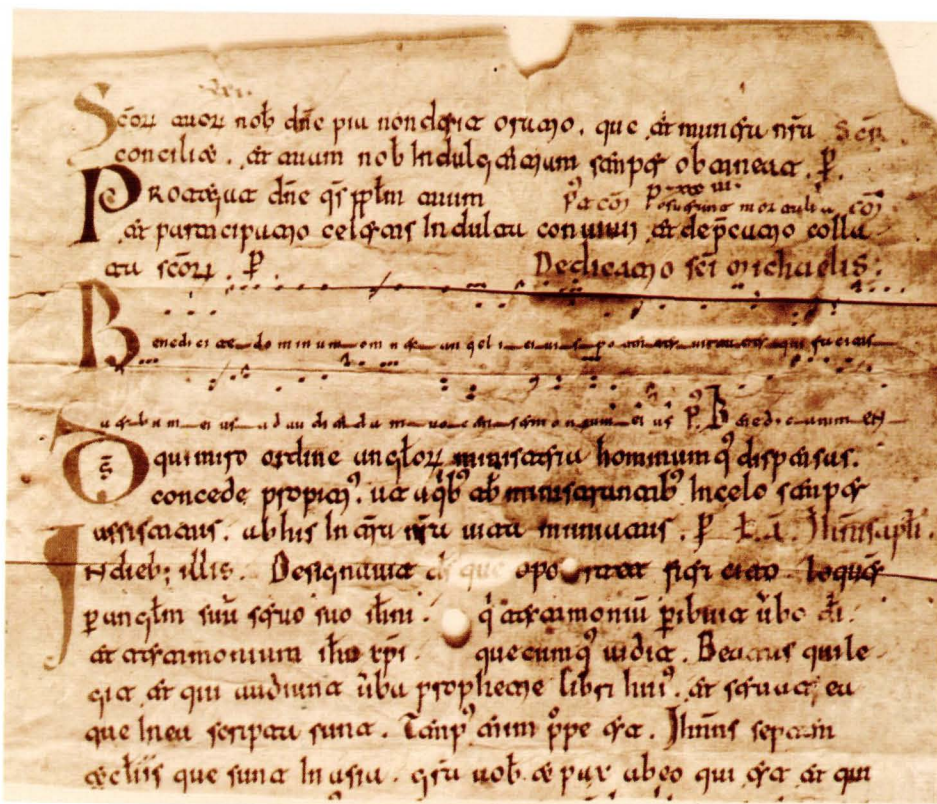 Scōꝝ tuoꝝ nob̄ dn̄e pia non desit oratio. que et munera nr̄a
conciliet. et tuam nob̄ Indulgentiam semper obtineat. P̄.
Protegat dn̄e qs̄ ppl̄m tuum
et participatio celestis Indulta conuiuii et dep̄catio colla
ta scōꝝ. P̄. Dedicatio sc̄i michaelis:
Benedicite dominum omnes angeli eius potentes uirtutes qui facitis
uerbum eius ad audiendam uocem sermonum eius P̄. Benedic anima
D̄s qui miro ordine angl̄oꝝ ministeria hominumq; dispensas.
concede propitiꝰ. ut a qb; ministrantib; In celo semper
assistitur. ab his In terra nr̄a uita muniatur. P̄ Joh̄is apl̄i.
In dieb; illis. Designauit d̄s que oportet fieri cito. loquēs
p̄ angl̄m suū seruo suo ioh̄i. q̄ testimoniū p̄ibuit ūbo d̄i.
et testimonium ih̄u xp̄i. quecumq; uidit. Beatus qui le
git et qui audiunt ūba prophetie libri huiꝰ. et seruat ea
que In ea scripta sunt. Tempꝰ enim p̄pe est. Joh̄ns septem
eccl̄iis que sunt In asia. gr̄a uob̄ et pax abeo qui est et qui